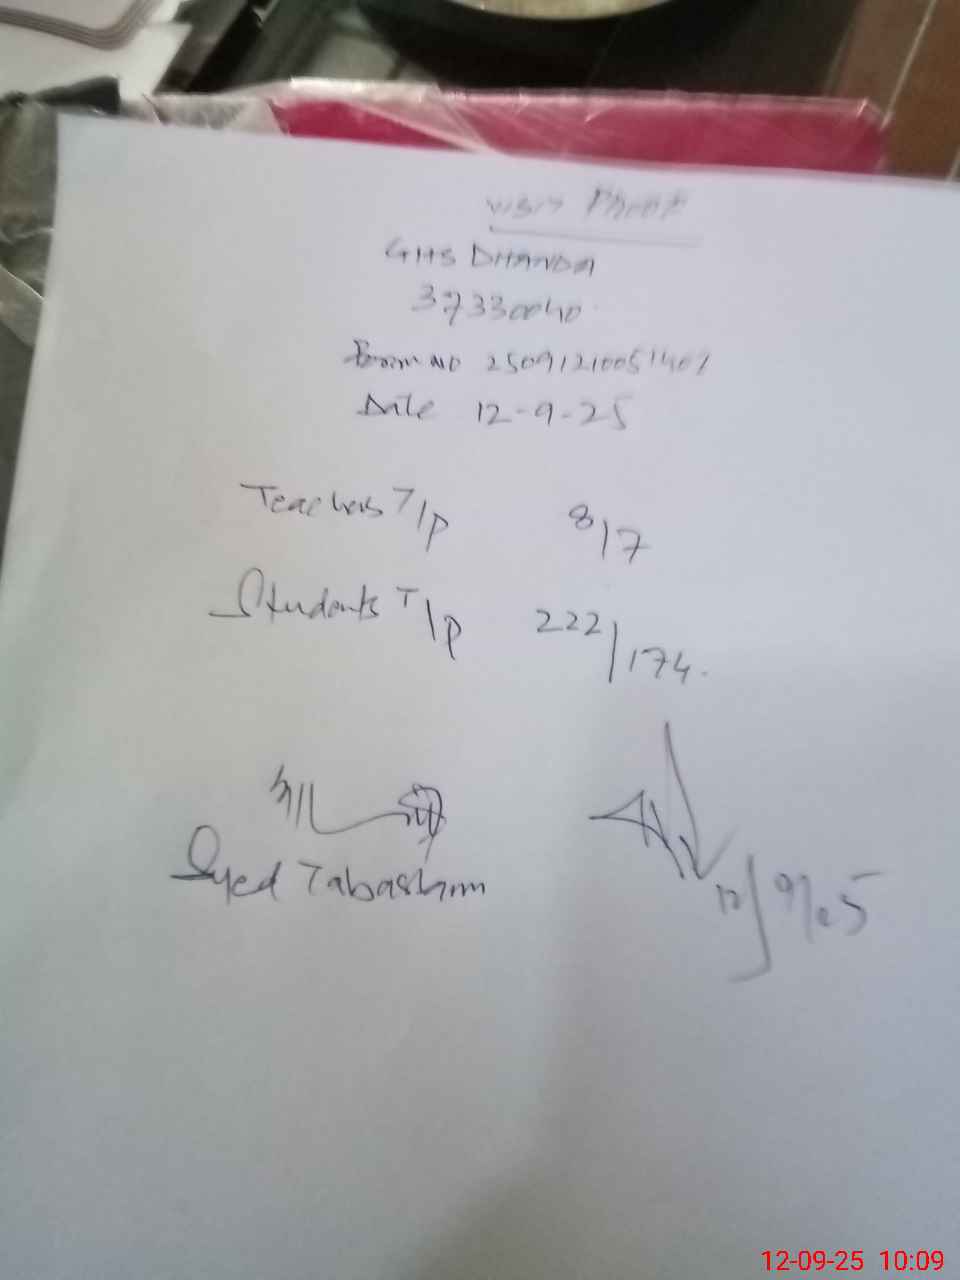 Visit Proof
GHS DHANDA
37330040
Form No 25091210051407
Date 12-9-25
Teachers T/p 8/7
Students T/p 222/174.
Syed Tabashum
12/9/25
12-09-25 10:09